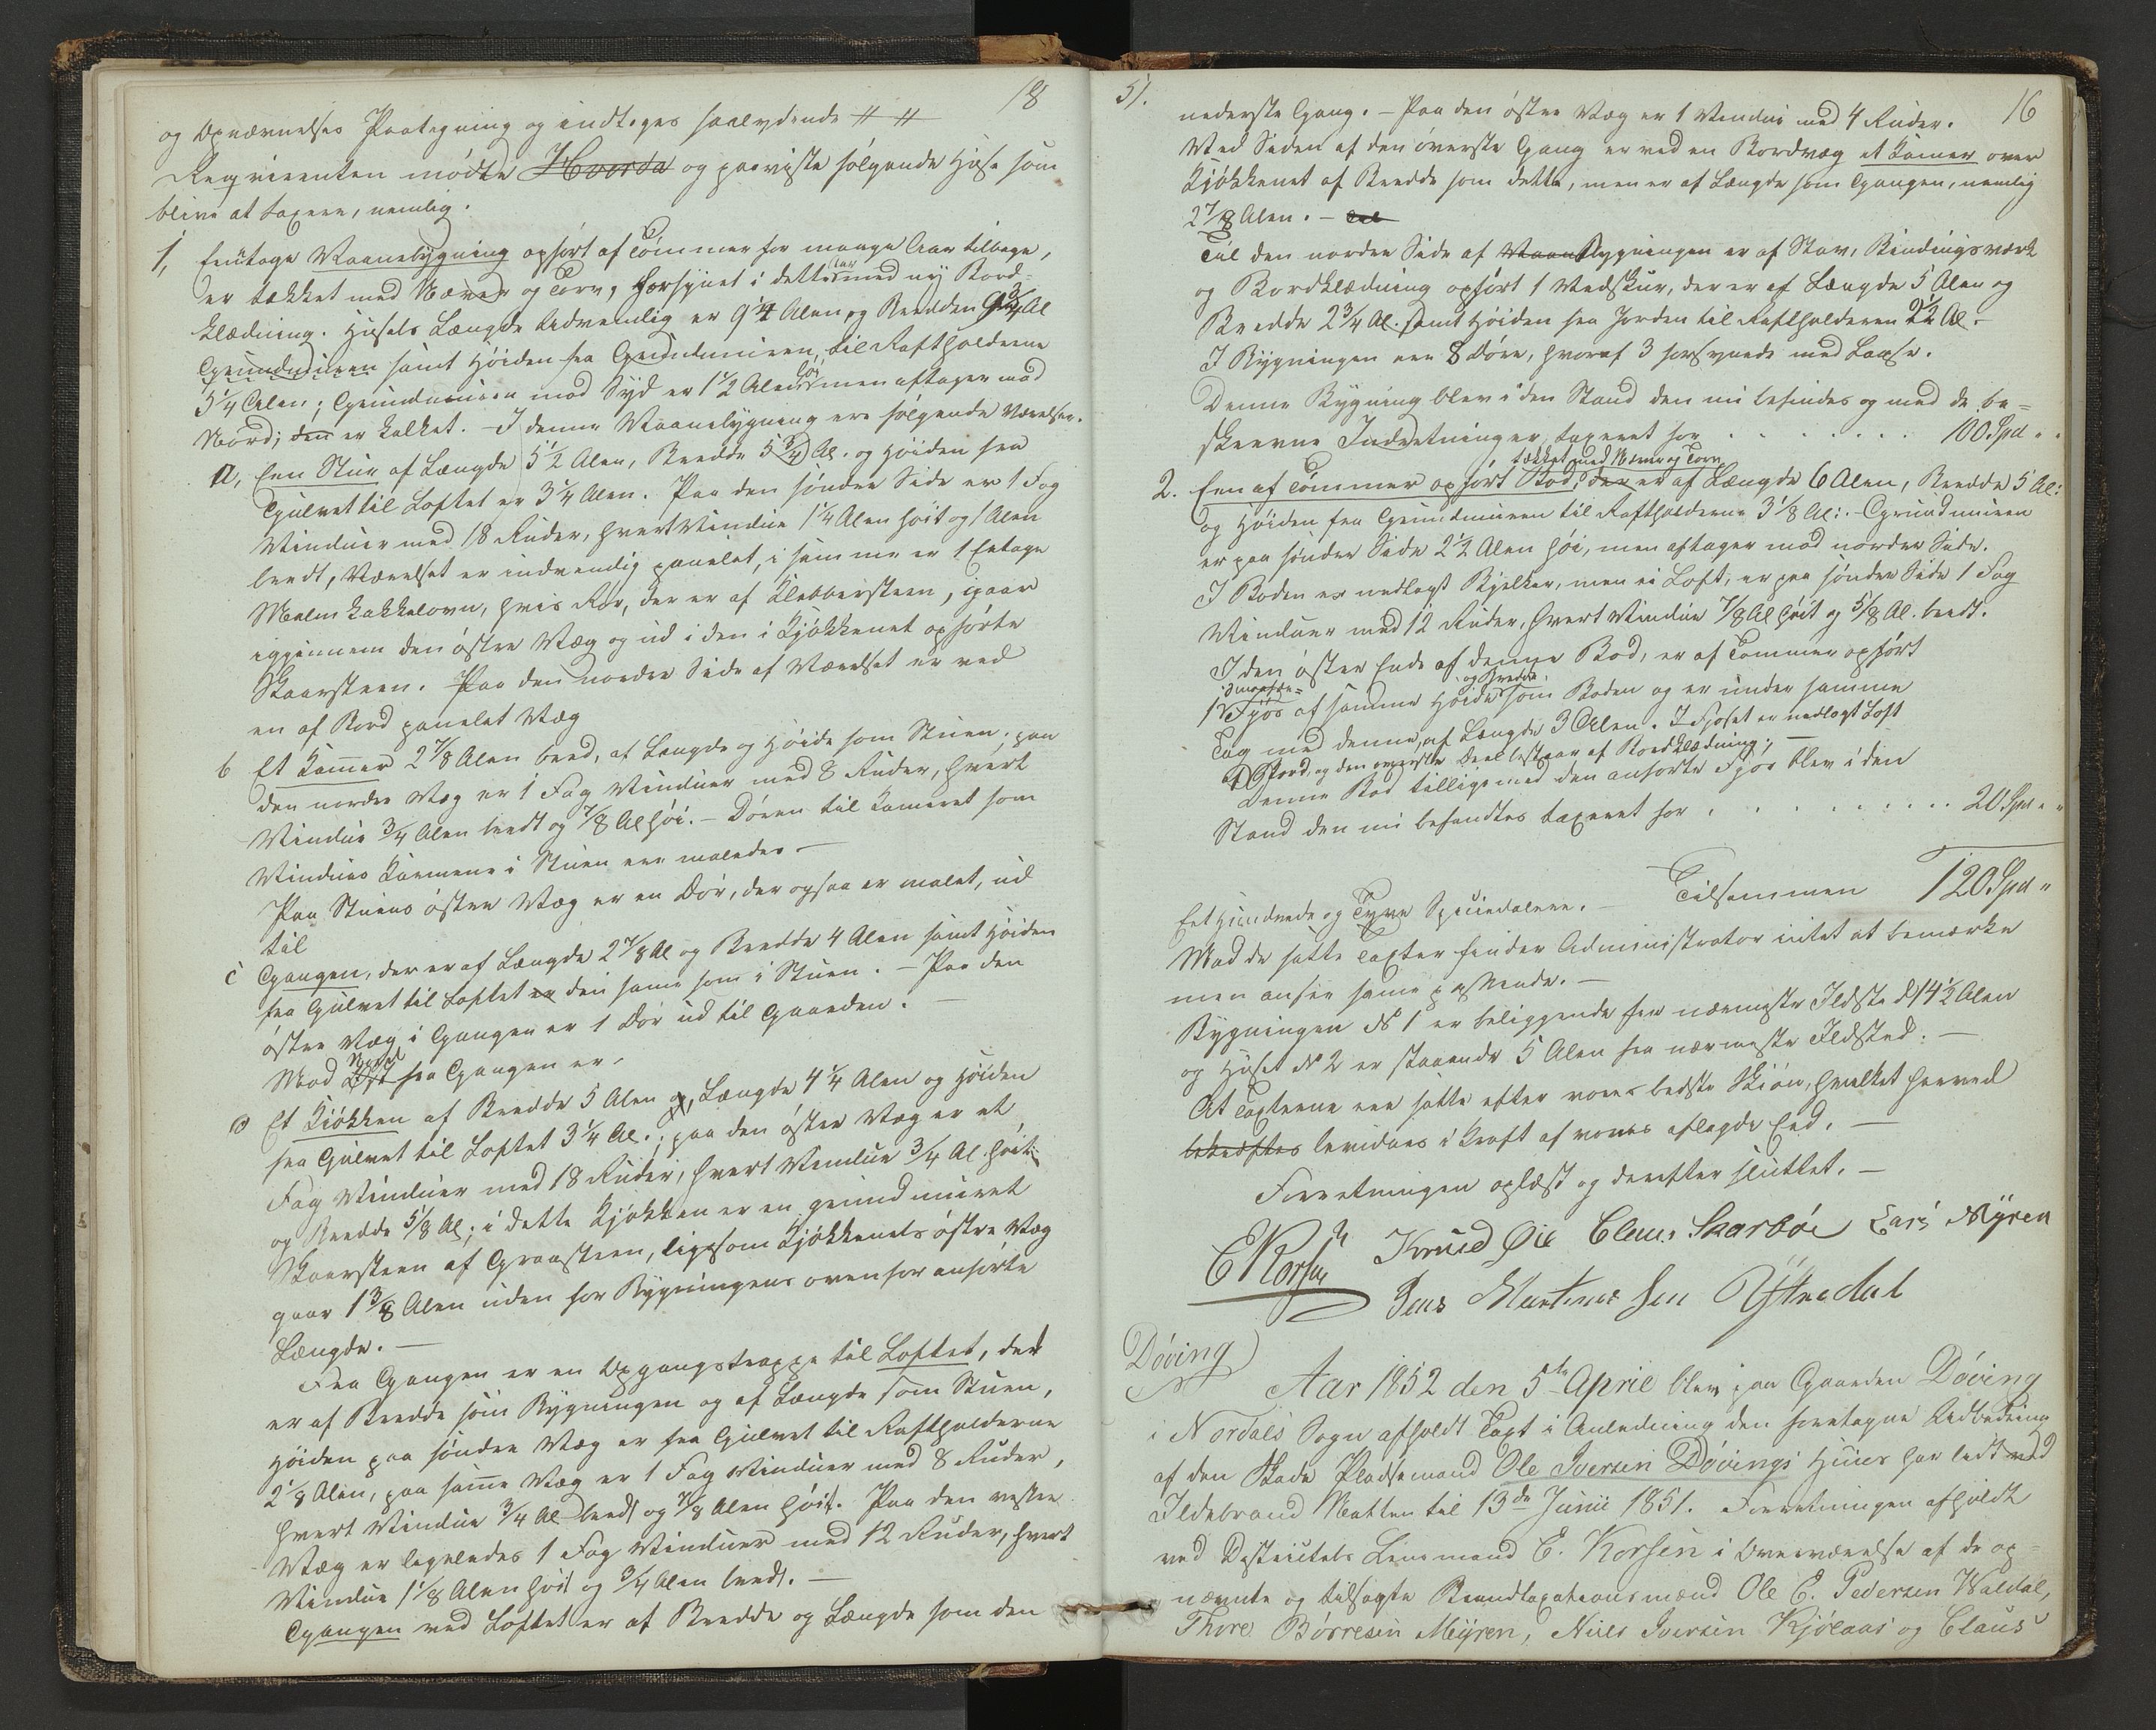 18
og Opnævnelses Paategning og indtages saalydende # #
Reqvirenten mødte Hvorda og paaviste følgende Huse som
blive at taxere, nemlig.
1, Eenetages Vaanebygning opført af Tømmer for mange Aar tilbage,
er tækket med Næver og Torv, forsynet i dette Aar med ny Bord-
klædning. Husets Længde udvendig er 9 1/4 Alen og Bredden 9 3/4 Al
Grundmuren samt Høiden fra Grundmuren til Raftholderne
5 1/4 Alen; Grundmuren mod Syd er 1 1/2 Alen høi men aftager mod
Nord; den er kalket. - I denne Vaanebygning ere følgende Værelser.
a, Een Stue af Længde 5 1/2 Alen, Bredde 5 3/4 Al. og Høiden fra
Gulvet til Loftet er 3 1/4 Alen. Paa den søndre Side er 1 Fag
Vinduer med 18 Ruder, hvert Vindue 1 1/4 Alen høit og 1 Alen
bredt, Værelset er indvendig panelet, i samme er 1 Etages
Malm Kakkelovn, hvis Rør, der er af Klebbersteen, gaar
igjennem den østre Væg og ud i den i Kjøkkenet opførte
Skaarsteen. Paa den nordre Side af Værelset er ved
en af Bord panelet Væg
b Et Kamer 2 7/8 Alen bred, af Længde og Høide som Stuen. paa
den nordre Væg er 1 Fag Vinduer med 8 Ruder, hvert
Vindue 3/4 Alen bredt og 7/8 Al høi. - Døren til Kameret som
Vindues Karmene i Stuen ere malede. -
Paa Stuens østre Væg er en Dør, der ogsaa er malet, ud
til
c Gangen, der er af Længde 2 7/8 Al og Bredde 4 Alen samt Høiden
fra Gulvet til Loftet er den same som i Stuen. - Paa den
østre Væg i Gangen er 1 Dør ud til Gaarden. -
Mod Øst Nord fra Gangen er.
d Et Kiøkken af Bredde 5 Alen og, Længde 4 1/4 Alen og Høiden
fra Gulvet til Loftet 3 1/4 Al.; paa den østre Væg er et
Fag Vinduer med 18 Ruder, hvert Vindue 3/4 Al. høit
og Bredde 5/8 Al; i dette Kjøkken er en grundmuret
Skaarsteen af Graasteen, ligesom Kjøkkenets østre Væg
gaar 1 3/8 Alen uden for Bygningens ovenfor anførte
Længde. -
Fra Gangen er en Opgangstrappe til Loftet, det
er af Bredde som Bygningen og af Længde som Stuen,
Høiden paa søndre Væg er fra Gulvet til Raftholderne
2 1/8 Alen, paa same Væg er 1 Fag Vinduer med 8 Ruder,
hvert Vindue 3/4 Al bredt og 7/8 Alen høit. Paa den vestre
Væg er ligeledes 1 Fag Vinduer med 12 Ruder, hvert
Vindue 1 1/8 Alen høit og 3/4 Alen bredt. -
Gangen ved Loftet er af Bredde og Længde som den
51.
16
nederste Gang. - Paa den østre Væg er 1 Vindue med 4 Ruder.
Ved Siden af den øverste Gang er ved en Bordvæg et Kamer over
Kjøkkenet af Bredde som dette, men er af Længde som Gangen, nemlig
2 7/8 Alen. -
Til den nordre Side af Vaane Bygningen er af Stav, Bindingsværk
og Bordklædning opført 1 Vedskur, der er af Længde 5 Alen og
Bredde 2 3/4 Al. samt Høiden fra Jorden til Raftholderen 2 1/2 Al. -
I Bygningen ere 8 Døre, hvoraf 3 forsynede med Laase.
Denne Bygning blev i den Stand den nu befindes og med de be-
skrevne Indretninger, taxeret for . . . . . . . . 100 Spd " "
tækket med Næver og Torv
2. Een af Tømmer opført Bod, der er af Længde 6 Alen, Bredde 5 Al:
og Høiden fra Grundmuren til Raftholderne 3 1/8 Al:. - Grundmuren
er paa søndre Side 2 1/2 Alen høi, men aftager mod nordre Side.
I Boden er nedlagt Bjelker, men ei Loft, er paa søndre Side 1 Fag
Vinduer med 12 Ruder, hvert Vindue 7/8 Al høit og 5/8 Al. bredt.
I den østre Ende af denne Bod, er af Tømmer opført
1 Smaafæ- Fjøs af samme Høide og Bredde som Boden og er under samme
Tag med denne, af Længde 3 Alen. I Fjøset er nedlagt Loft
af Bord, og den øverste Deel bestaar af Bordklædning; -
Denne Bod tilligemed den anførte Fjøs blev i den
Stand den nu befandtes taxeret for . . . . . . . . . . . 20 Spd " "
Tilsammen 120 Spd "
Eet Hundrede og Tyve Speciedalere. -
Mod de satte Taxter finder Administrator intet at bemærke
men anser same passende. -
Bygningen No 1 er beliggende fra nærmeste Ildsted 14 1/2 Alen
og Huset No 2 er staaende 5 Alen fra nærmeste Ildsted: -
At Taxterne ere satte efter vores bedste Skiøn, hvilket herved
bekræftes bevidnes i Kraft af vores aflagde Eed. -
Forretningen oplæst og derefter sluttet. -
E Korsen Knud Øie Claus Skarbøe Lars Myren
Jens Martinus sen Ytredal
Døving
Aar 1852 den 5te April blev paa Gaarden Døving
i Nordals Sogn afholdt Taxt i Anledning den foretagne Udbedring
af den Skade Pladsemand Ole Iversen Døvings Huus har lidt ved
Ildebrand Natten til 13de Junii 1851. Forretningen afholdt
ved Districtets Lensmand E. Korsen i Overværelse af de op-
nævnte og tilsagte Brandtaxationsmænd Ole E. Pedersen Waldal,
Thore Børresen Myren, Niels Iversen Kjølaas og Claus